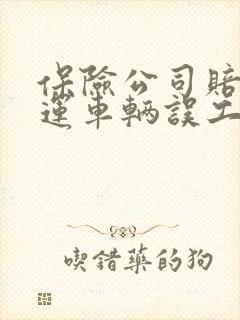 保險公司賠
運車輛誤工
喫錯藥的狗